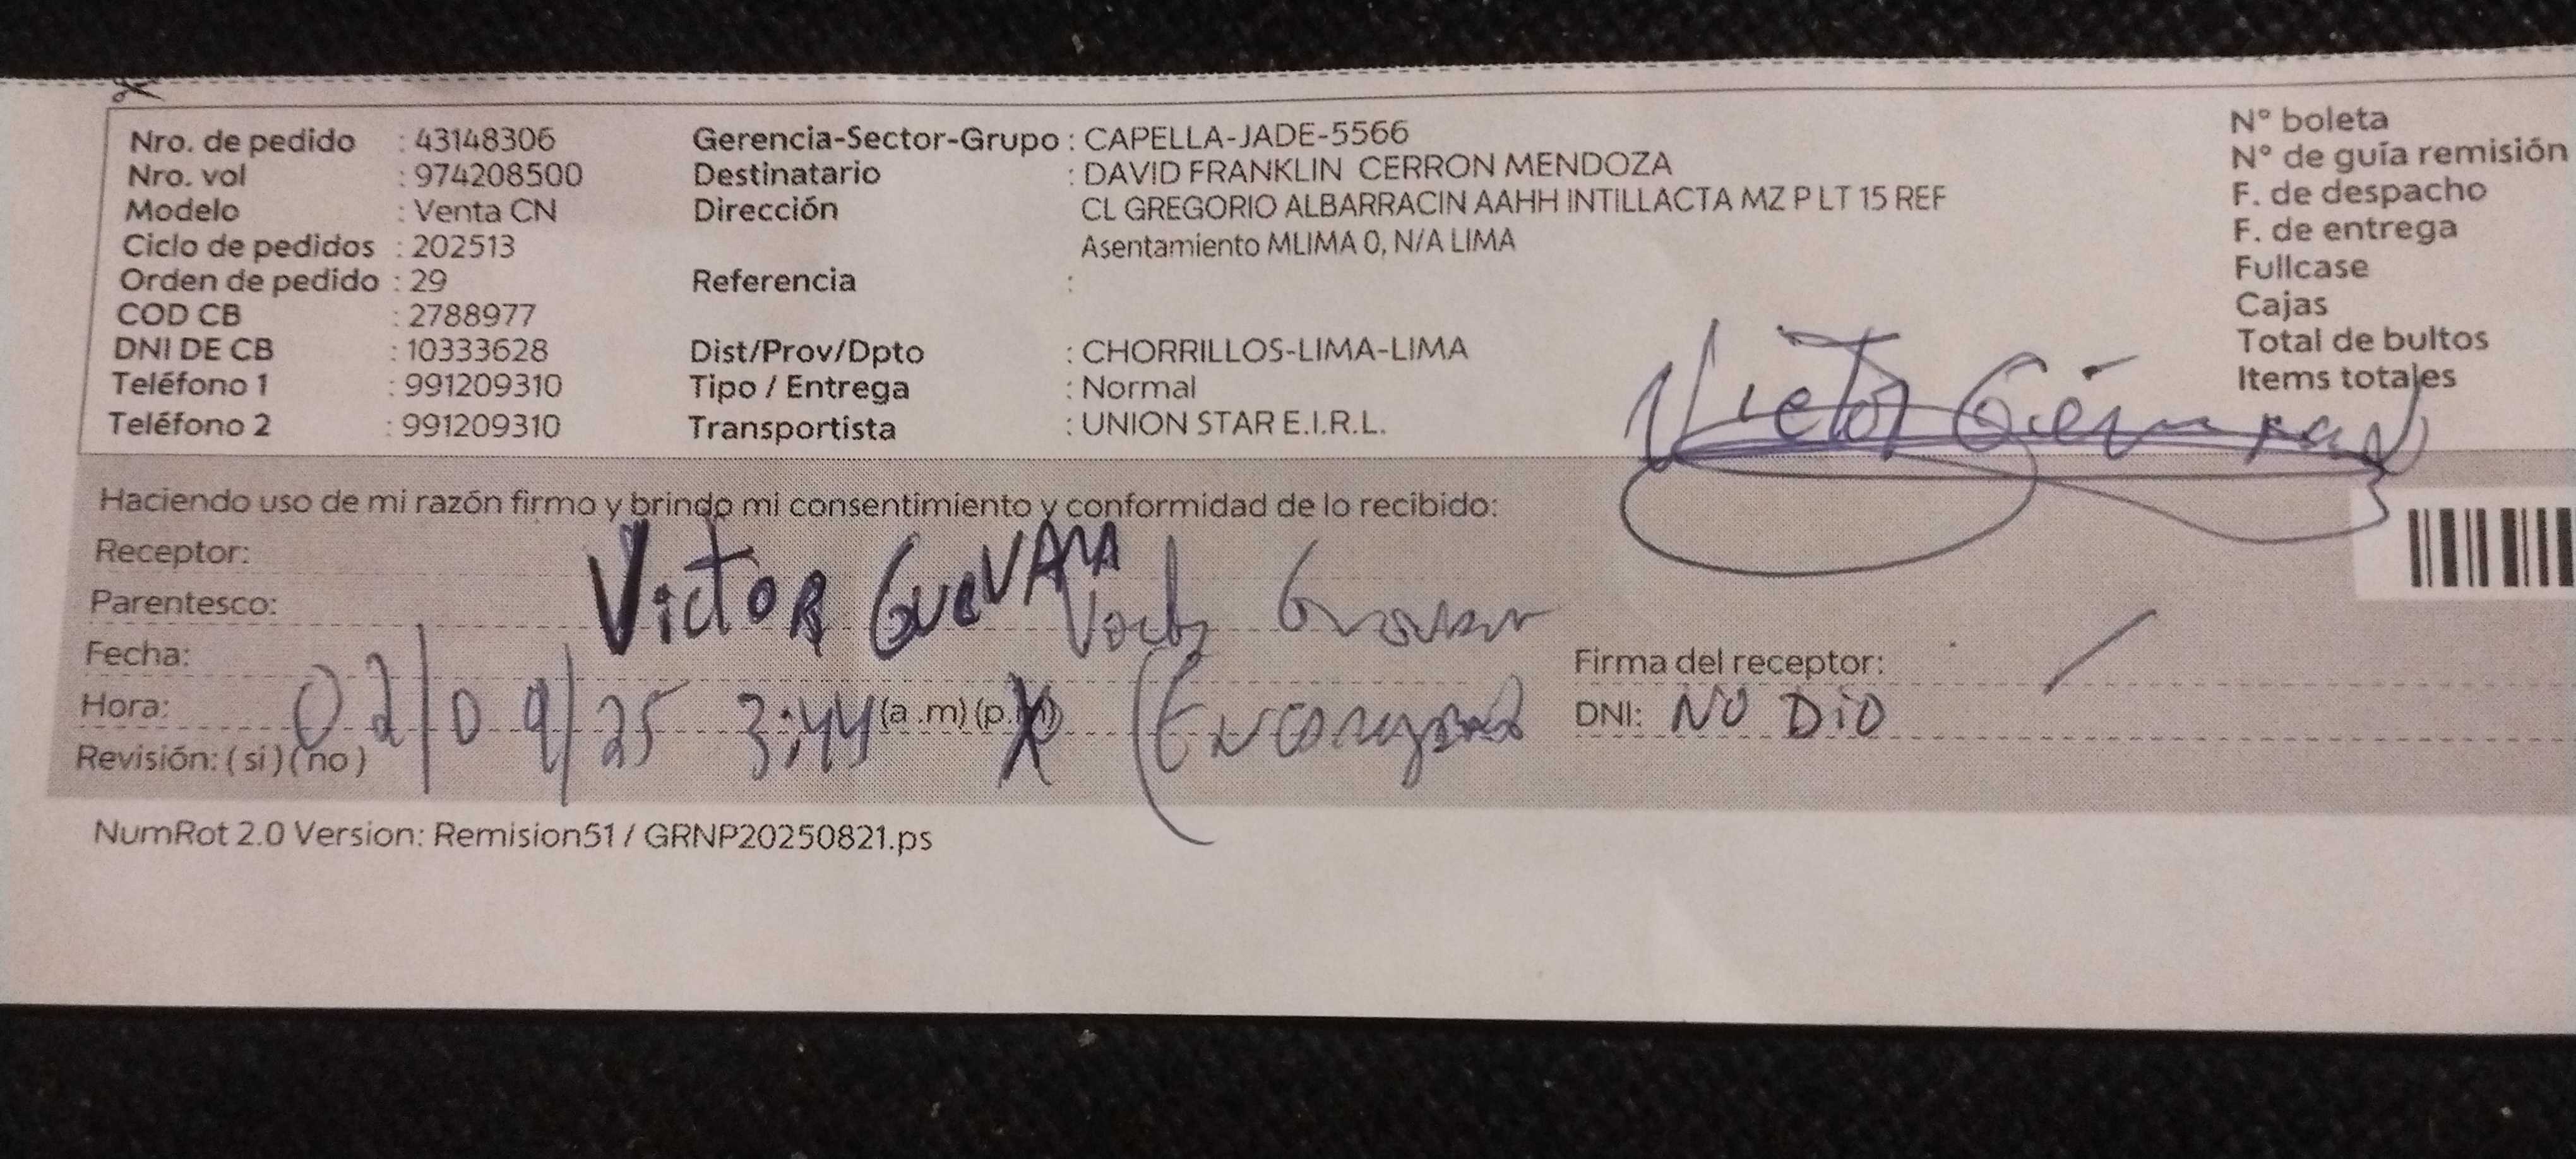 Nro. de pedido : 43148306
Nro. vol : 974208500
Modelo : Venta CN
Ciclo de pedidos : 202513
Orden de pedido : 29
COD CB : 2788977
DNI DE CB : 10333628
Teléfono 1 : 991209310
Teléfono 2 : 991209310
Gerencia-Sector-Grupo : CAPELLA-JADE-5566
Destinatario : DAVID FRANKLIN CERRON MENDOZA
Dirección CL GREGORIO ALBARRACIN AAHH INTILLACTA MZ P LT 15 REF
Asentamiento MLIMA 0, N/A LIMA
Referencia :
Dist/Prov/Dpto : CHORRILLOS-LIMA-LIMA
Tipo / Entrega : Normal
Transportista : UNION STAR E.I.R.L.
N° boleta
N° de guía remisión
F. de despacho
F. de entrega
Fullcase
Cajas
Total de bultos
Items totales
Victor
Haciendo uso de mi razón firmo y brindo mi consentimiento y conformidad de lo recibido:
Receptor:
VictoR GueVARA
Parentesco:
Fecha:
Hora: 02/09/25 3:44 (a.m) (p.m)
Revisión: (si) (no)
Firma del receptor:
DNI: NO DiO
NumRot 2.0 Version: Remision51 / GRNP20250821.ps